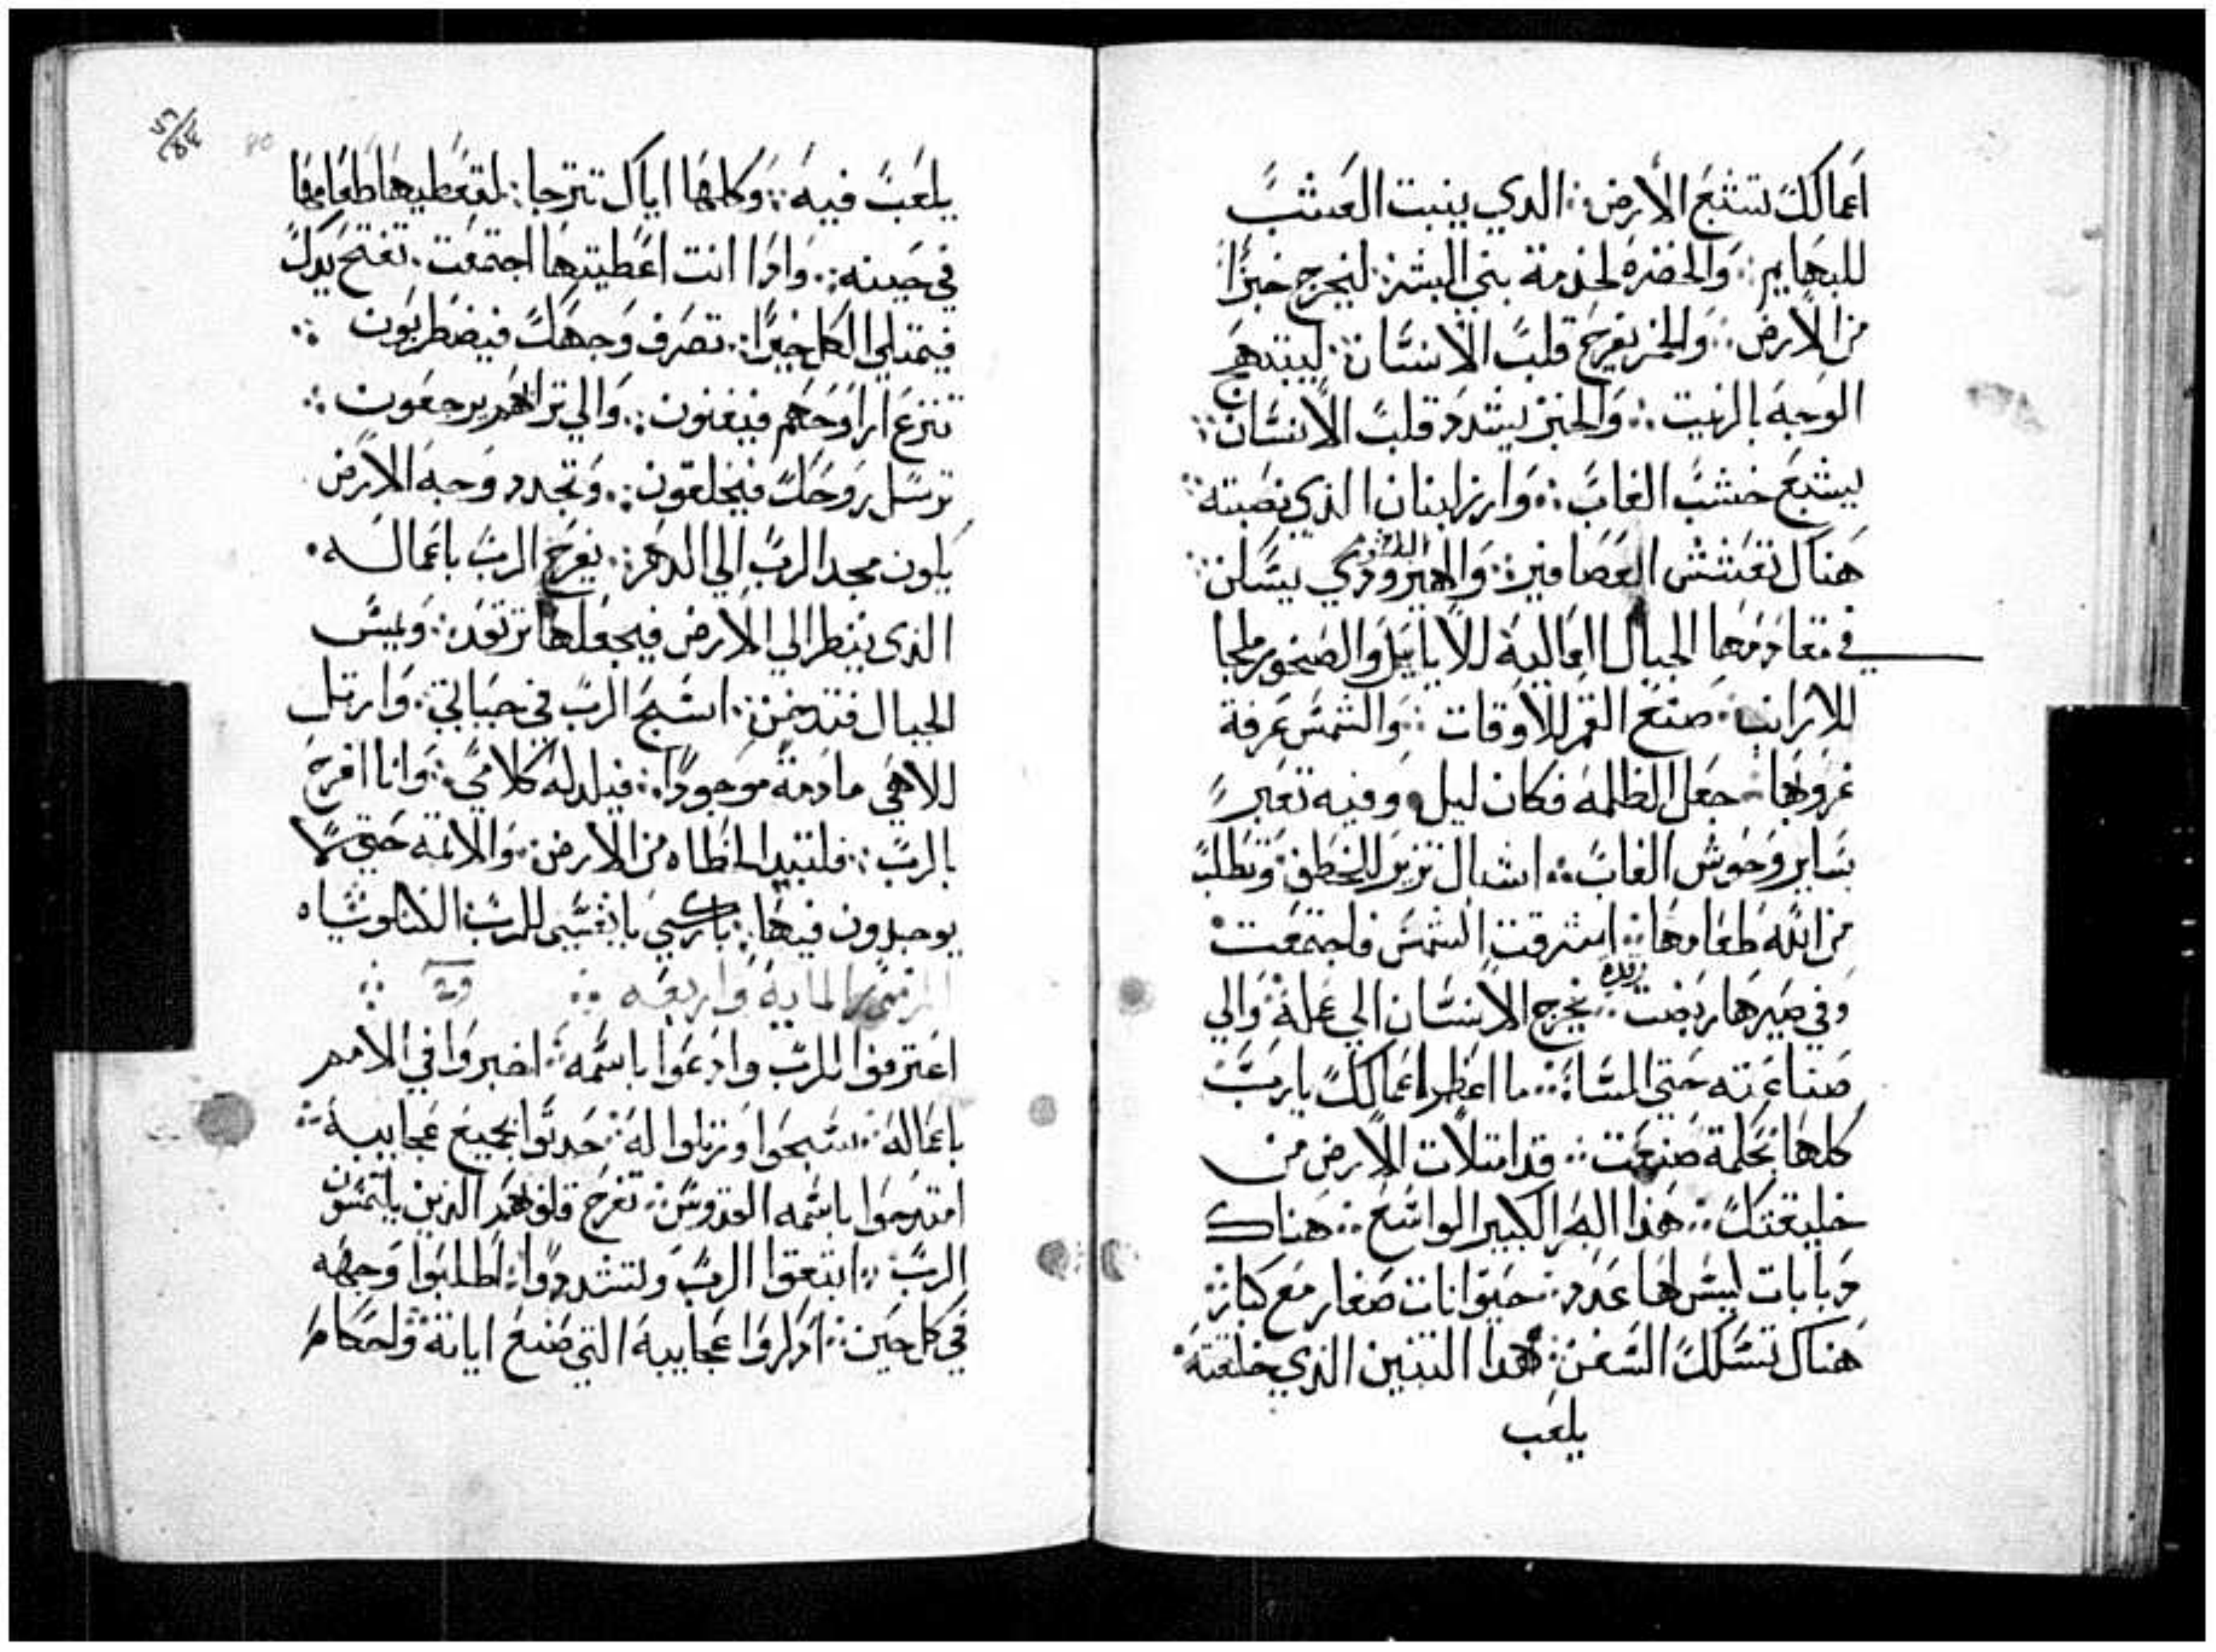 اعمالك تشبع الارض ∴ الدي ينبت العشب
للبهايم ∴ والخضره لخدمة بني البشر ∴ ليخرج خبزا
من الارض ∴ والخمر يفرح قلب الانسان ∴ ليبتهج
الوجه بالزيت ∴ والخبز يشدد قلب الانسان ∴
يشبع خشب الغاب ∴ وارز لبنان الذي نصبته ∴
هناك تعشش العصافير ∴ والهيرودي يسكن ∴
في مقادمها الجبال العاليه للايايل والصخور ملجا
للارانب ∴ صنع القمر للاوقات ∴ والشمس عرفة
غروبها ∴ جعل الظلمه فكان ليل وفيه تعبر
ساير وحوش الغاب ∴ اشبال تزير لتخطف وتطلب
من الله طعامها ∴ اشرقت الشمس فاجتمعت
وفي صيرها ربضت ∴ يخرج الانسان الي عمله والي
صناعته حتي المساء ∴ ما اعظم اعمالك يارب
كلها بحكمة صنعت ∴ قد امتلات الارض من
خليقتك ∴ هذا البحر الكبير الواسع ∴ هناك
دبابات ليس لها عدد ∴ حيوانات صغار مع كبار ∴
هناك تسلك السفن ∴ هدا التنين الذي خلقته
يلعب
يلعب فيه ∴ وكلها اياك تترجا ∴ لتعطيها طعامها
في حينه ∴ وادا انت اعطيتها اجتمعت ∴ تفتح يدك
فيمتلي الكل خيرا ∴ تصرف وجهك فيضطربون ∴
تنزع ارواحهم فيفنون ∴ والي ترابهم يرجعون ∴
ترسل روحك فيخلقون ∴ وتجدد وجه الارض
يكون مجد الرب الي الدهر ∴ يفرح الرب باعماله
الذى ينظر الي الارض فيجعلها ترتعد ∴ ويمس
الجبال فتدخن ∴ اسبح الرب في حياتي ∴ وارتل
للاهي ما دمة موجودا ∴ فيلد له كلامي ∴ وانا افرح
بالرب ∴ فلتبيد الخطاه من الارض ∴ والاتمه حتي لا
يوجدون فيها ∴ باركي يا نفسي للرب الليلوياه
المزمور المايه واربعه ∴
اعترفوا للرب وادعوا باسمه ∴ اخبروا في الامم
باعماله ∴ سبحوا ورتلوا له ∴ حدتوا بجميع عجايبه ∴
امتدحوا باسمه القدوس ∴ تفرح قلوبهم الذين يلتمسون
الرب ∴ ابتغوا الرب ولتشددوا ∴ اطلبوا وجهه
في كل حين ∴ ادكروا عجايبه التي صنع اياته واحكام